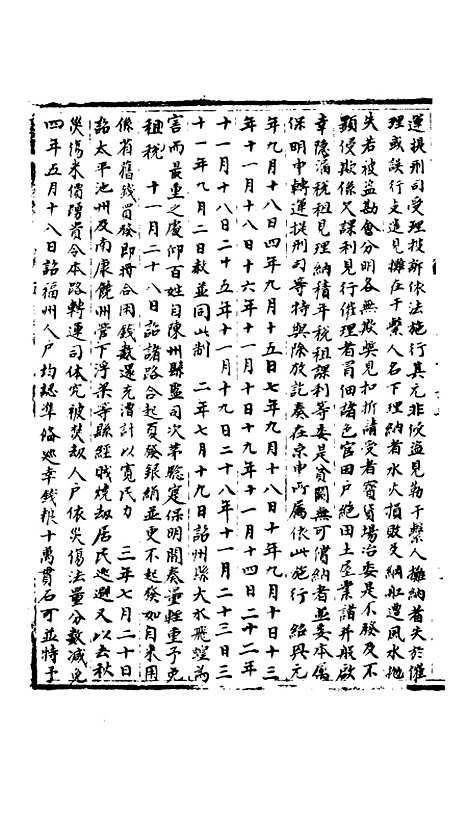 運提刑司受理投訴依法施行其元非侵盜見勒干繫人攤納者失於催
理或誤行支遣見攤在干繫人名下理納者水火損敗及綱船遭風水拋
失若被盜勘會分明各無欺弊見扣折請受者窰貨場冶委是不發及不
顯侵欺係欠課利見行催理者買佃諸色官田戶絕田土屋業諸井般欲
幸隱漏稅租見理納積年稅租課利等委是貧闕無可償納者並委本屬
保明申轉運提刑司等特與除放訖奏在京申所屬依此施行 紹興元
年九月十八日四年九月十五日七年九月十八日十年九月十日十三
年十一月十八日十六年十一月十日十九年十一月十四日二十二年
十一月十八日二十五年十一月十九日二十八年十一月二十三日三
十一年九月二日赦並同此制 二年七月十九日詔州縣大水飛蝗為
害而最重之處仰百姓自陳州縣監司次第驗定保明聞奏量輕重予免
租稅 十一月二十八日詔諸路合起夏發銀絹並更不起發如自來用
係省舊錢買發即將合用錢數還充漕計以寬民力 三年七月二十日
詔太平池州及南康饒州管下浮梁等縣經賊燒劫居民逃避又以去秋
災傷米價踴貴令本路轉運司体究被焚劫人戶依災傷法量分數減免
四年五月十八日詔福州人戶均認準備巡幸錢糧十萬貫石可並特予